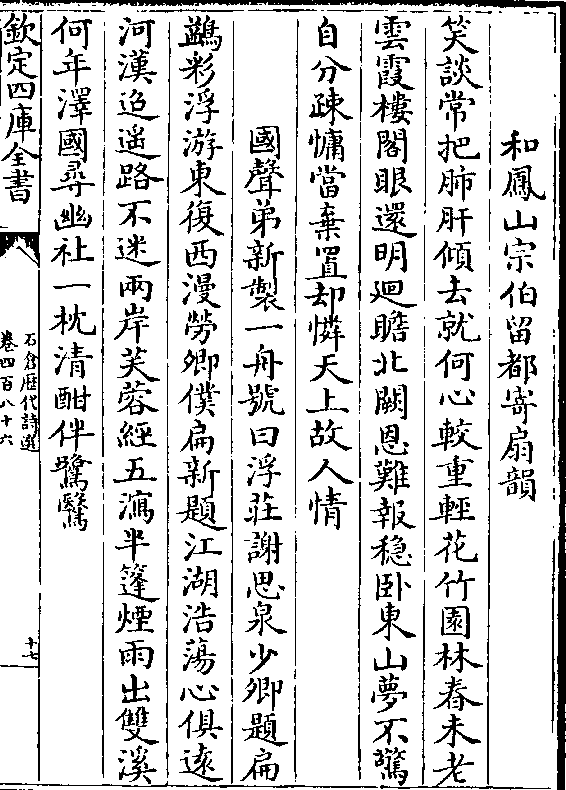 和鳳山宗伯留都寄扇韻
笑談常把肺肝傾去就何心較重輕花竹園林春未老
雲霞樓閣眼還明廻瞻北闕恩難報穏卧東山夢不驚
自分疎慵當棄置却憐天上故人情
國聲弟新製一舟號曰浮莊謝思泉少卿題扁
鷁彩浮游東復西漫勞卿僕扁新題江湖浩蕩心俱逺
河漢迢遥路不迷兩岸芙蓉經五瀉半篷煙雨出雙溪
何年澤國尋幽社一枕清酣伴鷺鷖
欽定四庫全書
石倉歴代詩選
卷四百八十六
十七